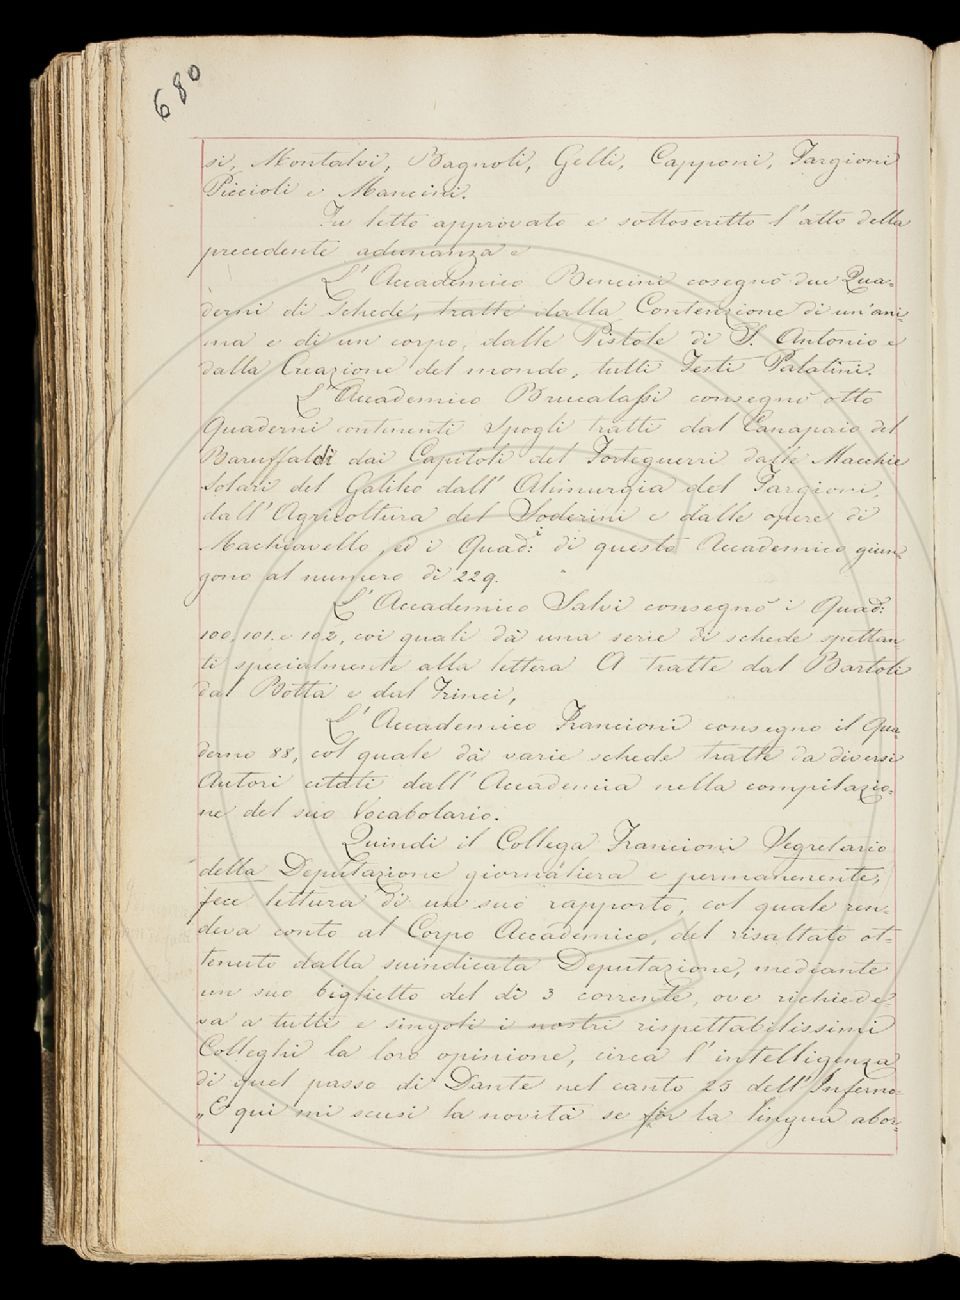 680
si, Montalvi, Bagnoli, Gelli, Capponi, Targioni
Piccioli e Mancini.
Fu letto approvato e sottoscritto l'atto della
precedente adunanza e
L'Accademico Bencini cosegnò due Qua=
derni di Schede, tratte dalla Contenzione di un'ani=
ma e di un corpo, dalle Pistole di S. Antonio e
dalla Creazione del mondo, tutti Testi Palatini.
L'Accademico Brucalassi consegnò otto
Quaderni continenti spogli tratti dal Canapaio del
Baruffaldi dai Capitoli del Forteguerri dalle Macchie
Solari del Galileo dall'Alimurgia del Targioni,
dall'Agricoltura del Soderini e dalle opere di
Machiavello, ed i Quad:i di questo Accademico giun=
gono al numero di 229.
L'Accademico Salvi consegnò i Quad:
100, 101. e 102, coi quali dà una serie di schede spettan=
ti specialmente alla lettera A tratte dal Bartoli
dal Botta e dal Trinci,
L'Accademico Francioni consegno il Qua=
derno 88, col quale dà varie schede tratte da diversi
Autori citati dall'Accademia nella compilazio=
ne del suo Vocabolario.
Quindi il Collega Francioni Segretario
della Deputazione giornaliera e permanenente,
fece lettura di un suo rapporto, col quale ren=
deva conto al Corpo Accademico, del risaltato ot=
tenuto dalla suindicata Deputazione, mediante
un suo biglietto del dì 3 corrente, ove richiede
va a tutti e singoli i nostri rispettabilissimi
Colleghi la loro opinione, circa l'intelligenza
di quel passo di Dante nel canto 25 dell'Inferno=
„E qui mi scusi la novità se fior la lingua abor=